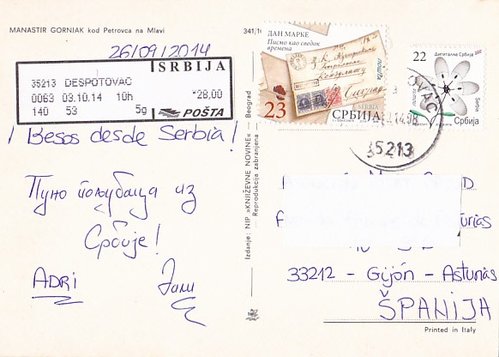 MANASTIR GORNJAK kod Petrovca na Mlavi
341/10
26/09/2014
SRBIJA
35213 DESPOTOVAC
0063 03.10.14 10h
*28,00
140 53 5g
POŠTA
¡Besos desde Serbia!
Пуно пољубаца из
Србије!
ADRI
Izdanje: NIP »KNJIŽEVNE NOVINE« — Beograd
Reprodukcija zabranjena
ДАН МАРКЕ
Писмо као сведок
времена
23
СРБИЈА
22
Дигитална Србија
Србија
35213
33212 - Gijón - Asturias
ŠPANIJA
Printed in Italy